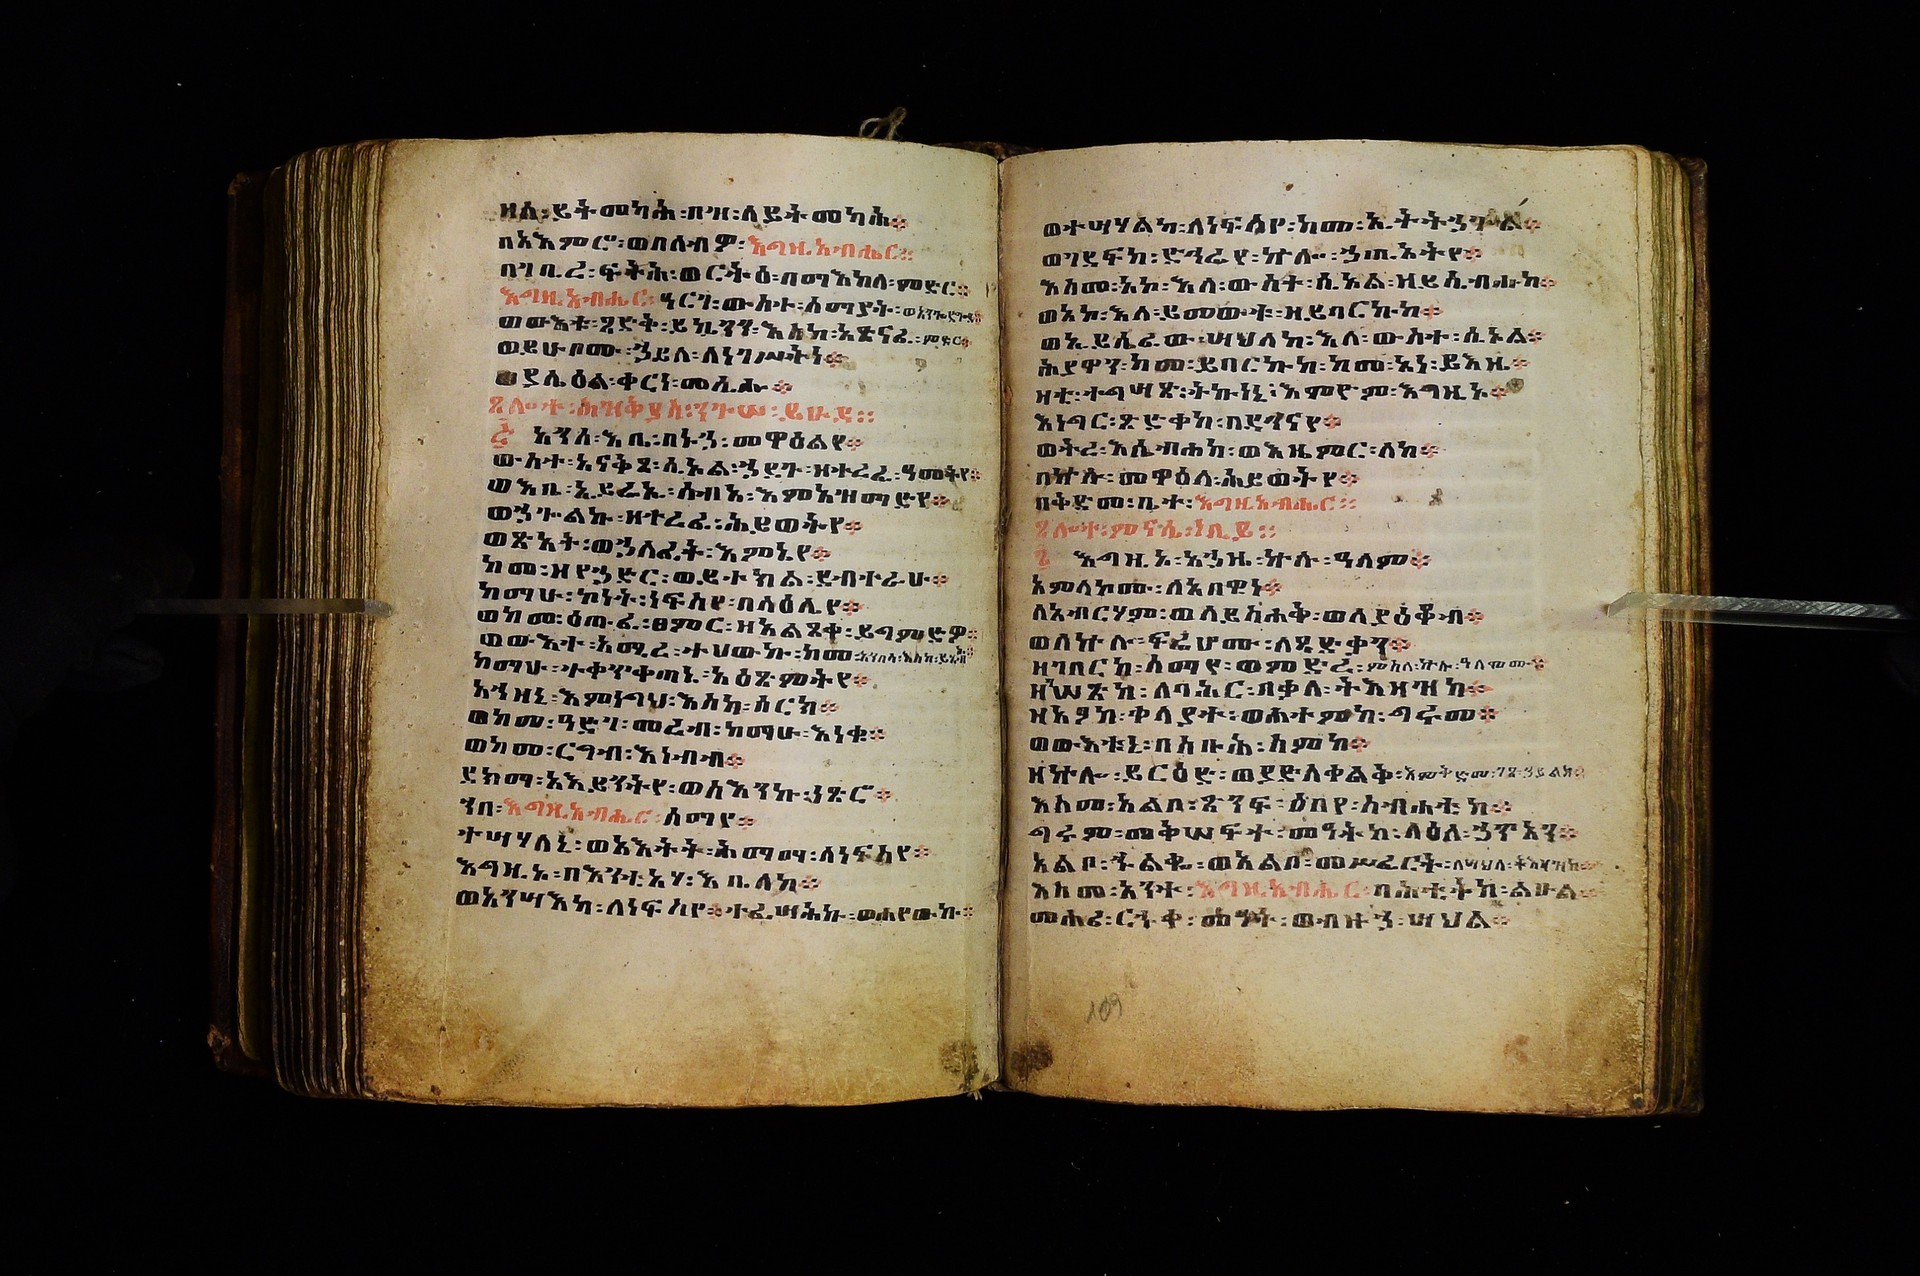 ዘለ፡ይትመካሕ፡በዝ፡ለይትመካሕ፨
በአእምሮ፡ወበለብዎ፡እግዚአብሔር፨
በገቢረ፡ፍትሕ፡ወርትዕ፡በማእከለ፡ምድር፨
እግዚአብሔር፡ዓርገ፡ውስተ፡ሰማያት፡ወአንጐድጐደ፨
ወውእቱ፡ጻድቅ፡ይኴንን፡እስከ፡አጽናፈ፡ምድር፨
ወይሁቦሙ፡ኃይለ፡ለነገሥትነ፨
ወያሌዕል፡ቀርነ፡መሲሑ፨
ጸሎተ፡ሕዝቅያስ፡ንጉሠ፡ይሁዳ፨
አንሰ፡እቤ፡በኑኃ፡መዋዕልየ፨
ውስተ፡አናቅጸ፡ሲኦል፡ኃደጉ፡ዘተረፈ፡ዓመትየ፨
ወእቤ፡ኢይሬኢ፡ሰብአ፡እምአዝማድየ፨
ወኃጐልኩ፡ዘተረፈ፡ሕይወትየ፨
ወጽአት፡ወኃለፈት፡እምኔየ፨
ከመ፡ዘየኃድር፡ወይተክል፡ደብተራሁ፨
ከማሁ፡ኮነት፡ነፍስየ፡በላዕሌየ፨
ወከመ፡ዕጤ፡ፀምር፡ዘአልጸቀ፡ይግምድዎ፨
ወውእተ፡አሚረ፡ተህውኩ፡ከመ፡
ከማሁ፡ተቀጥቀጠኒ፡አዕጽምትየ፨
አኀዘኒ፡እምነግህ፡እስከ፡ሰርክ፨
ወከመ፡ዓድገ፡መረብ፡ከማሁ፡እነቁ፨
ወከመ፡ርግብ፡እነብብ፨
ደክማ፡አእይንትየ፡ወሰእንኩ፡ነጽሮ፨
ኀበ፡እግዚአብሔር፡ሰማየ፨
ተሣሃለኒ፡ወአእትት፡ሕማማ፡ለነፍስየ፨
እግዚኦ፡በእንቲአሃ፡እቤለከ፨
ወአንሣእካ፡ለነፍስየ፨ተፈሣሕኩ፡ወሐየውኩ፨
ወተሣሃልካ፡ለነፍስየ፡ከመ፡ኢትትኃጐል፨
ወገደፍከ፡ድኅሬየ፡ኵሎ፡ኃጢአትየ፨
እስመ፡አኮ፡እለ፡ውስተ፡ሲኦል፡ዘይሴብሑከ፨
ወአኮ፡እለ፡ይመውቱ፡ዘይባርኩከ፨
ወኢይሴፈው፡ሣህለከ፡እለ፡ውስተ፡ሲኦል፨
ሕያዋን፡ከመ፡ይባርኩከ፡ከመ፡አነ፡ይእዜ፨
ዘቲ፡ተግሣጽ፡ትኩነኒ፡እምዮም፡እግዚኦ፨
እነግር፡ጽድቀከ፡በደኅናየ፨
ወትረ፡እሴብሐከ፡ወእዜምር፡ለከ፨
በኵሉ፡መዋዕለ፡ሕይወትየ፨
በቅድመ፡ቤተ፡እግዚአብሔር፨
ጸሎተ፡ምናሴ፡ነቢይ፨
እግዚኦ፡አኃዜ፡ኵሉ፡ዓለም፨
አምላኮሙ፡ለአበዊነ፨
ለአብርሃም፡ወለይስሐቅ፡ወለያዕቆብ፨
ወለኵሎ፡ፍሬሆሙ፡ለጻድቃን፨
ዘገበርከ፡ሰማየ፡ወምድረ፡ምስለ፡ኵሉ፡ዓለሞሙ፨
ዘገሠጽከ፡ለባሕር፡በቃለ፡ትእዛዝከ፨
ዘአፆከ፡ቀላያተ፡ወሐተምከ፡ግሩመ፨
ወውእቱኒ፡በስቡሕ፡ስምከ፨
ዘኵሎ፡ይርዕድ፡ወያድለቀልቅ፡እምቅድመ፡ገጸ፡ኃይልከ፨
እስመ፡አልቦ፡ጽንፍ፡ዕበየ፡ስብሐቲከ፨
ግሩም፡መቅሠፍተ፡መዓትከ፡ላዕለ፡ኃጥአን፨
አልቦ፡ኍልቈ፡ወአልቦ፡መሥፈርት፡ለሣህለ፡ትእዛዝከ፨
እስመ፡አንተ፡እግዚአብሔር፡ባሕቲትከ፡ልዑል፨
መሐሪ፡ርኁቀ፡መዓት፡ወብዙኃ፡ሣህል፨
109